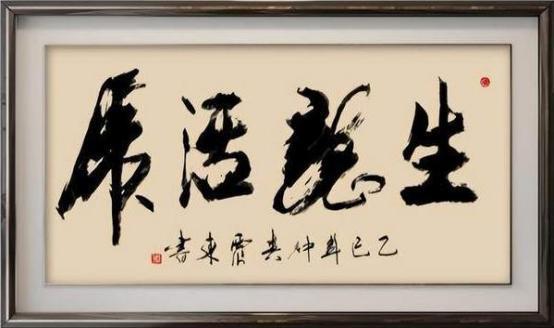 生龍活虎
乙巳年仲東書